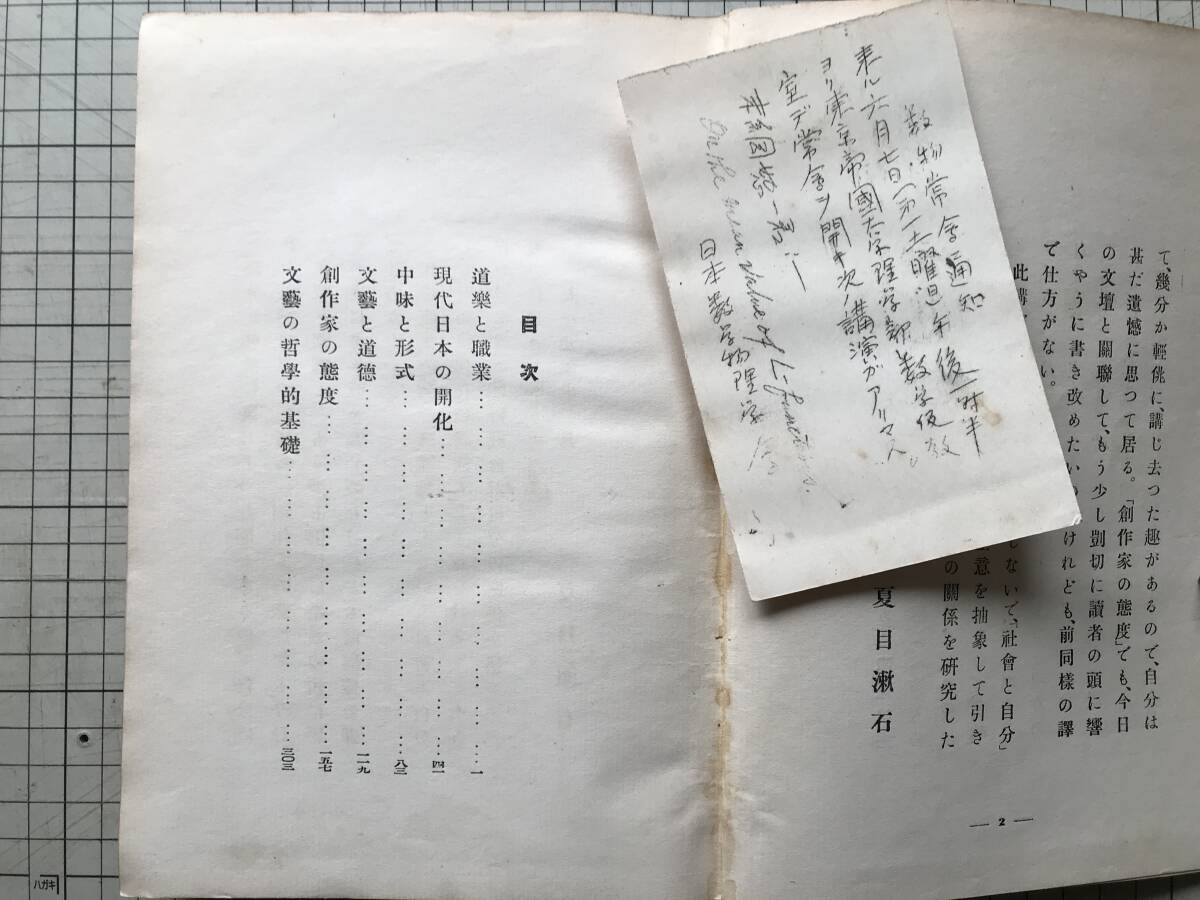 て、幾分か輕佻に、講じ去つた趣があるので、自分は
甚だ遺憾に思つて居る。「創作家の態度」でも、今日
の文壇と關聯して、もう少し剴切に讀者の頭に響
くやうに書き改めたいの けれども、前同樣の譯
で仕方がない。
此講
しないで、「社會と自分」
意を抽象して引き
の關係を研究した
夏目漱石
― 2 ―
数物常会通知
来ル六月七日(第一土曜日)午後一時半
ヨリ東京帝國大学理学部数学教
室デ常会ヲ開キ次ノ講演ガアリマス
君:―
On the mean value of L-functions.
日本数学物理学会
目次
道樂と職業… … … … … … … … … …一
現代日本の開化… … … … … … … …四一
中味と形式… … … … … … … … …八三
文藝と道德… … … … … … … … …一一九
創作家の態度… … … … … … … …一五七
文藝の哲學的基礎… … … … … … …三〇三
ハガキ